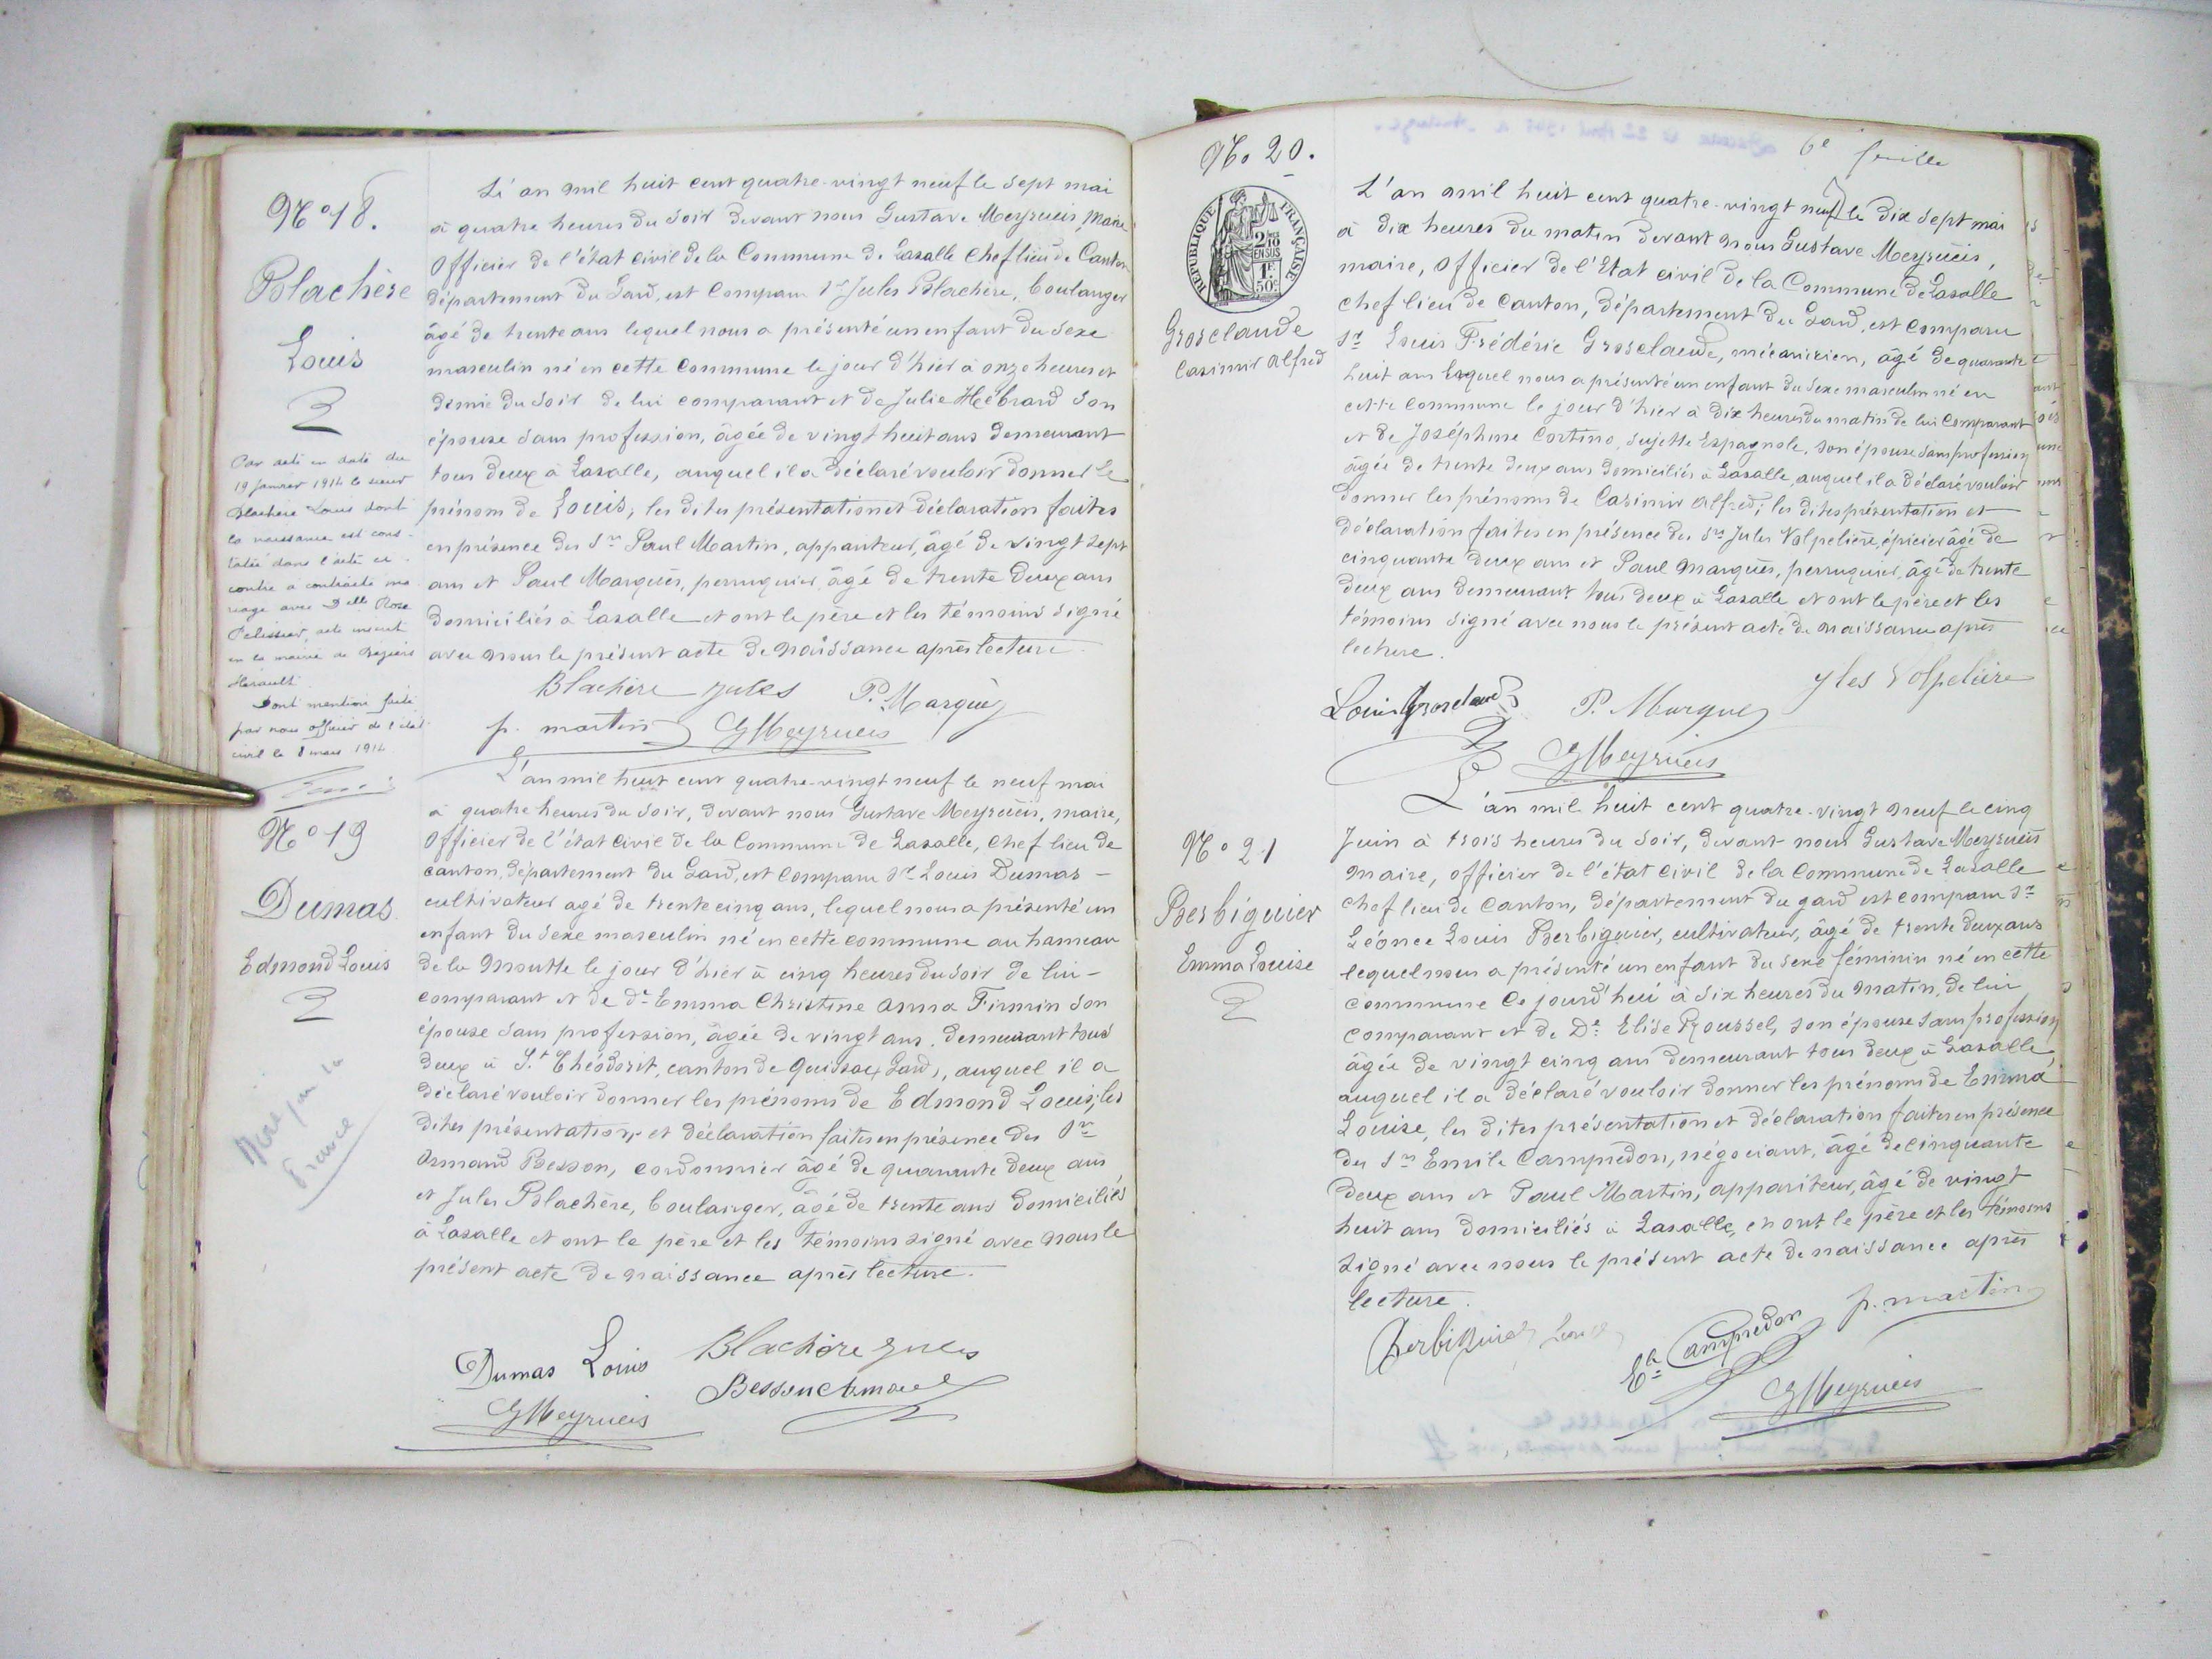 No 18.
Blachère
Louis
L'an mil huit cent quatre-vingt neuf le sept mai
à quatre heures du soir devant nous Gustave Meyrueis, Maire,
Officier de l'état civil de la Commune de Lasalle Chef lieu de Canton
département du Gard, est comparu Sr Jules Blachère, boulanger
âgé de trente ans lequel nous a présenté un enfant du sexe
masculin né en cette Commune le jour d'hier à onze heures et
demie du soir de lui comparant et de Julie Hébrard son
épouse sans profession, âgée de vingt huit ans demeurant
tous deux à Lasalle, auquel il a déclaré vouloir donner le
prénom de Louis, les dites présentation et déclaration faites
en présence des Srs Paul Martin, appariteur, âgé de vingt sept
ans et Paul Marquès, perruquier, âgé de trente deux ans
domiciliés à Lasalle et ont le père et les témoins signé
avec nous le présent acte de naissance après lecture.
Par acte en date du
19 janvier 1914 le sieur
Blachère Louis dont
la naissance est cons-
tatée dans l'acte ci-
contre a contracté ma-
riage avec Delle Rose
Pelissier, acte inscrit
en la mairie de Beziers
Herault.
Dont mention faite
par nous officier de l'état
civil le 8 mars 1914
Blachère Jules P. Marquès
p. martin GMeyrueis
No 19
Dumas
Edmond Louis
L'an mil huit cent quatre-vingt neuf le neuf mai
à quatre heures du soir, devant nous Gustave Meyrueis, maire,
Officier de l'état civil de la Commune de Lasalle, chef lieu de
canton, département du Gard, est comparu Sr Louis Dumas -
cultivateur agé de trente cinq ans, lequel nous a présenté un
enfant du sexe masculin né en cette commune au hameau
de la Moutte le jour d'hier à cinq heures du soir de lui -
comparant et de De Emma Christine Anna Firmin son
épouse sans profession, âgée de vingt ans, demeurant tous
deux à St Théodorit, canton de Quissac Gard, auquel il a
déclaré vouloir donner les prénoms de Edmond Louis; les
dites présentation et déclaration faites en présence des Srs
Armand Besson, cordonnier âgé de quarante deux ans
et Jules Blachère, boulanger, âgé de trente ans domiciliés
à Lasalle et ont le père et les témoins signé avec nous le
présent acte de naissance après lecture.
Mort pour la
France
Dumas Louis Blachère Jules
GMeyrueis Besson Armand
6e feuille
No 20.
RÉPUBLIQUE FRANÇAISE
2/10
EN SUS
1F
50c
Grosclaude
Casimir Alfred
L'an mil huit cent quatre-vingt neuf le dix sept mai
à dix heures du matin devant nous Gustave Meyrueis,
maire, Officier de l'Etat civil de la Commune de Lasalle
chef lieu de canton, département du Gard, est comparu
Sr Louis Frédéric Grosclaude, mécanicien, âgé de quarante
huit ans lequel nous a présenté un enfant du sexe masculin né en
cette commune le jour d'hier à dix heures du matin de lui comparant
et de Joséphine Cortino, sujette Espagnole, son épouse sans profession
âgée de trente deux ans domiciliés à Lasalle, auquel il a déclaré vouloir
donner les prénoms de Casimir Alfred; les dites présentation et
déclaration faites en présence des Srs Jules Volpelière, épicier âgé de
cinquante deux ans et Paul Marquès, perruquier, âgé de trente
deux ans demeurant tous deux à Lasalle et ont le père et les
témoins signé avec nous le présent acte de naissance après
lecture.
Louis Grosclaude P. Marquès Jles Volpelière
GMeyrueis
No 21
Berbiguier
Emma Louise
L'an mil huit cent quatre-vingt neuf le cinq
Juin à trois heures du soir, devant nous Gustave Meyrueis
maire, officier de l'état civil de la commune de Lasalle
chef lieu de canton, département du gard est comparu Sr
Léonce Louis Berbiguier, cultivateur, âgé de trente deux ans
lequel nous a présenté un enfant du sexe féminin né en cette
commune ce jourd'hui à six heures du matin, de lui
comparant et de De Elise Roussel, son épouse sans profession
âgée de vingt cinq ans demeurant tous deux à Lasalle,
auquel il a déclaré vouloir donner les prénoms de Emma
Louise, les dites présentation et déclaration faites en présence
des Srs Emile Campredon, négociant, âgé de cinquante
deux ans et Paul Martin, appariteur, âgé de vingt
huit ans domiciliés à Lasalle, et ont le père et les témoins
signé avec nous le présent acte de naissance après
lecture.
Berbiguier Ele Campredon p. martin
GMeyrueis